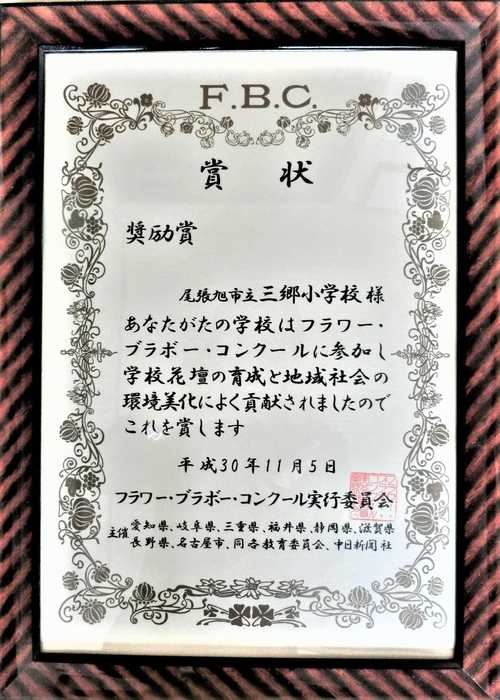 F.B.C.
賞 状
奨励賞
尾張旭市立三郷小学校 様
あなたがたの学校はフラワー・
ブラボー・コンクールに参加し
学校花壇の育成と地域社会の
環境美化によく貢献されましたので
これを賞します
平成30年11月5日
フラワー・ブラボー・コンクール実行委員会
主催 愛知県、岐阜県、三重県、福井県、静岡県、滋賀県
長野県、名古屋市、同各教育委員会、中日新聞社